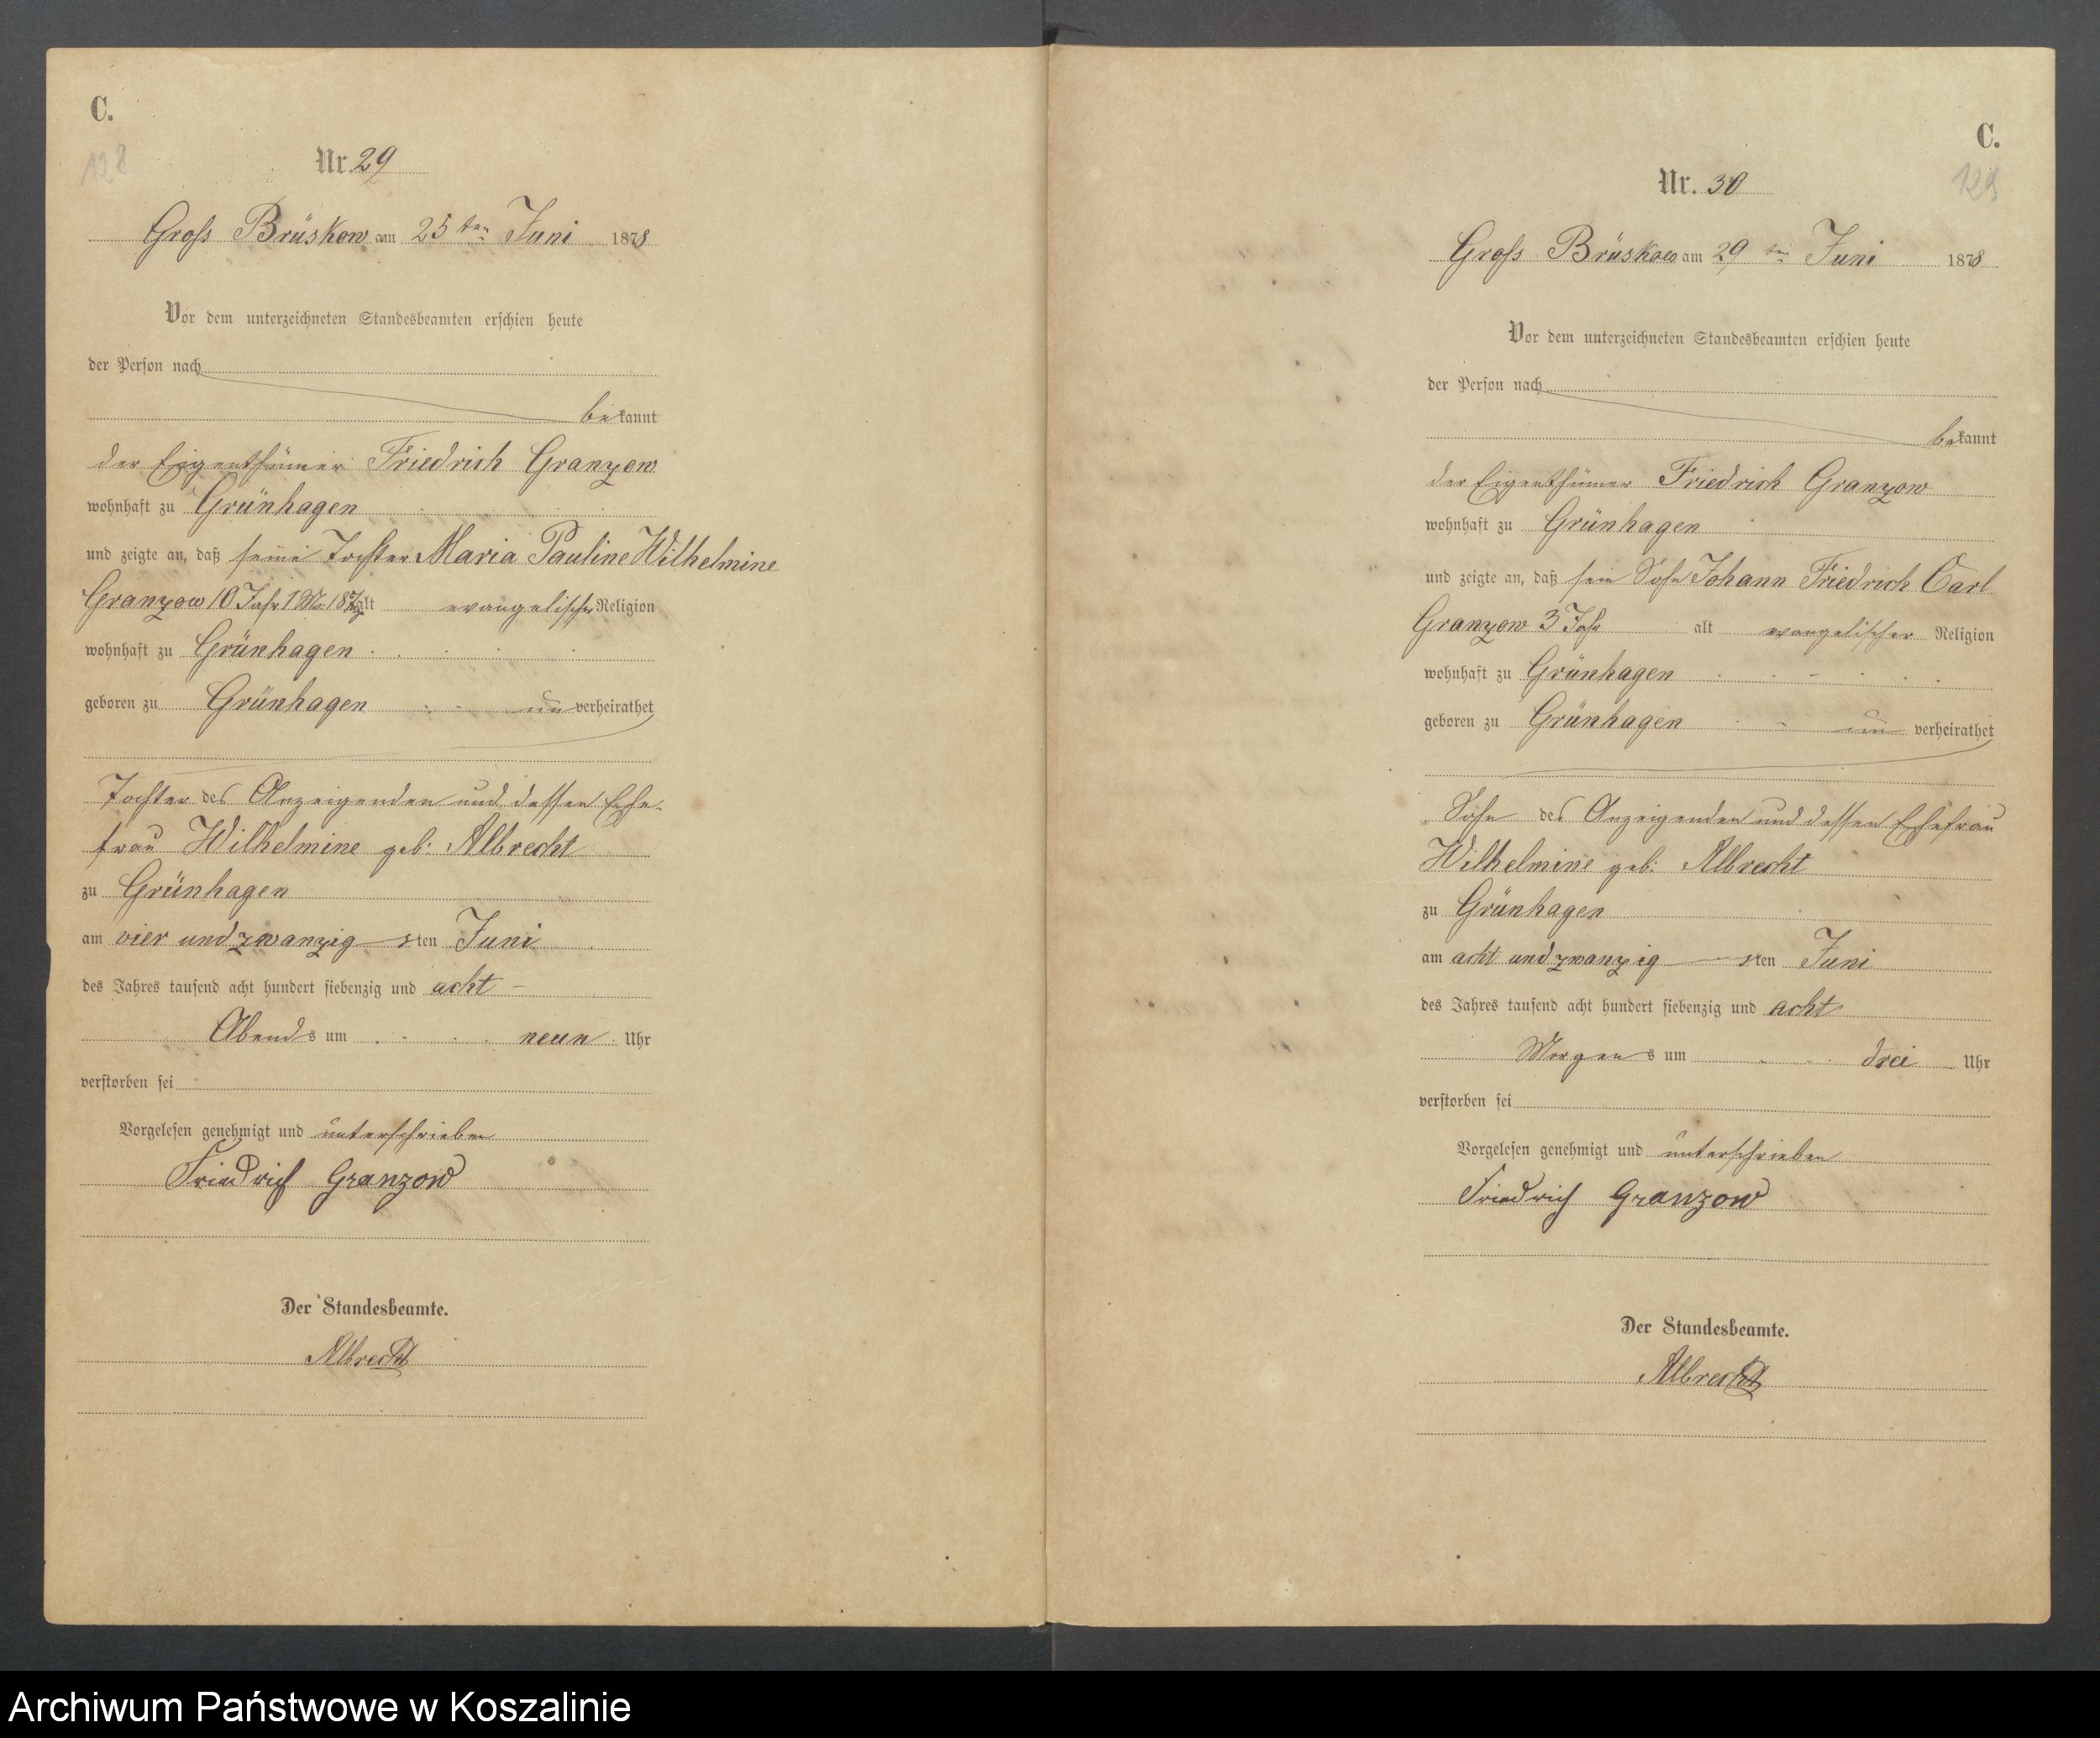 C.
138
Nr. 29
Groß Brüskow am 25ten Juni 1878
Vor dem unterzeichneten Standesbeamten erschien heute
der Person nach
bekannt
der Eigenthümer Friedrich Granzow
wohnhaft zu Grünhagen
und zeigte an, daß seine Tochter Maria Pauline Wilhelmine
Granzow 10 Jahr 1 Mo 18 alt evangelischer Religion
wohnhaft zu Grünhagen
geboren zu Grünhagen unverheirathet
Tochter des Anzeigenden und dessen Ehe-
frau Wilhelmine geb: Albrecht
zu Grünhagen
am vier und zwanzigsten Juni
des Jahres tausend acht hundert siebenzig und acht
Abends um neun Uhr
verstorben sei
Vorgelesen genehmigt und unterschrieben
Friedrich Granzow
Der Standesbeamte.
Albrecht
C.
129
Nr. 30
Groß Brüskow am 29ten Juni 1878
Vor dem unterzeichneten Standesbeamten erschien heute
der Person nach
bekannt
der Eigenthümer Friedrich Granzow
wohnhaft zu Grünhagen
und zeigte an, daß sein Sohn Johann Friedrich Carl
Granzow 3 Jahr alt evangelischer Religion
wohnhaft zu Grünhagen
geboren zu Grünhagen unverheirathet
Sohn des Anzeigenden und dessen Ehefrau
Wilhelmine geb: Albrecht
zu Grünhagen
am acht und zwanzigsten Juni
des Jahres tausend acht hundert siebenzig und acht
Morgens um drei Uhr
verstorben sei
Vorgelesen genehmigt und unterschrieben
Friedrich Granzow
Der Standesbeamte.
Albrecht
Archiwum Państwowe w Koszalinie